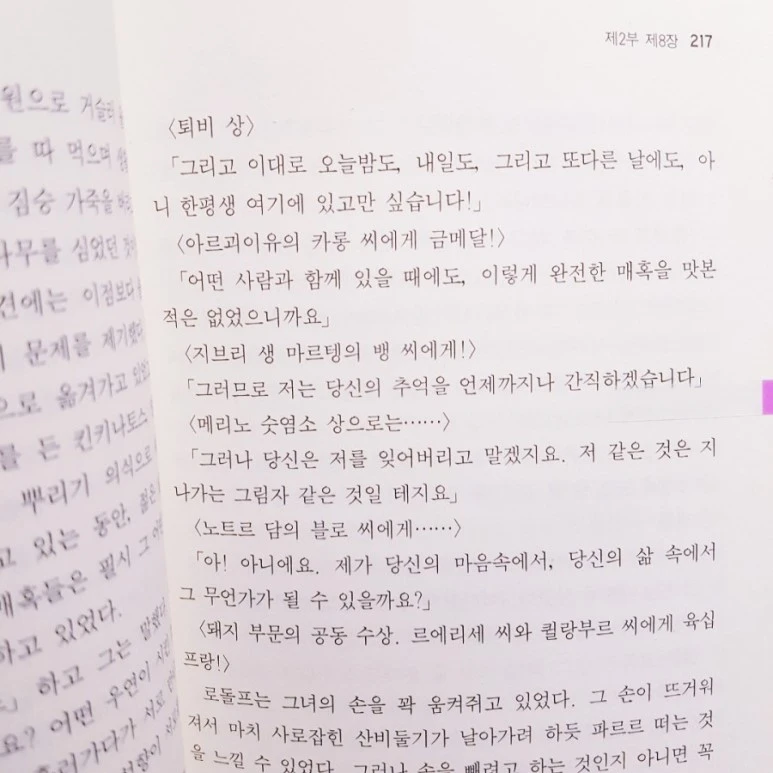 원으로 거슬러
를 따 먹으며
짐승 가죽을
나무를 심었던
견에는 이점보다
문제를 제기했다
으로 옮겨가고
를 든 킨키나토스
뿌리기 의식으로
고 있는 동안, 젊은
매혹들은 필시 그
하고 있었다.
하고 그는 말했다
요? 어떤 우연이
흘러가다가 서로
제2부 제8장 217
〈퇴비 상〉
「그리고 이대로 오늘밤도, 내일도, 그리고 또다른 날에도, 아
니 한평생 여기에 있고만 싶습니다!」
〈아르괴이유의 카롱 씨에게 금메달!〉
「어떤 사람과 함께 있을 때에도, 이렇게 완전한 매혹을 맛본
적은 없었으니까요」
〈지브리 생 마르텡의 뱅 씨에게!〉
「그러므로 저는 당신의 추억을 언제까지나 간직하겠습니다」
〈메리노 숫염소 상으로는……〉
「그러나 당신은 저를 잊어버리고 말겠지요. 저 같은 것은 지
나가는 그림자 같은 것일 테지요」
〈노트르 담의 블로 씨에게……〉
「아! 아니에요. 제가 당신의 마음속에서, 당신의 삶 속에서
그 무언가가 될 수 있을까요?」
〈돼지 부문의 공동 수상. 르에리세 씨와 퀼랑부르 씨에게 육십
프랑!〉
로돌프는 그녀의 손을 꽉 움켜쥐고 있었다. 그 손이 뜨거워
져서 마치 사로잡힌 산비둘기가 날아가려 하듯 파르르 떠는 것
을 느낄 수 있었다. 그러나 손을 빼려고 하는 것인지 아니면 꼭